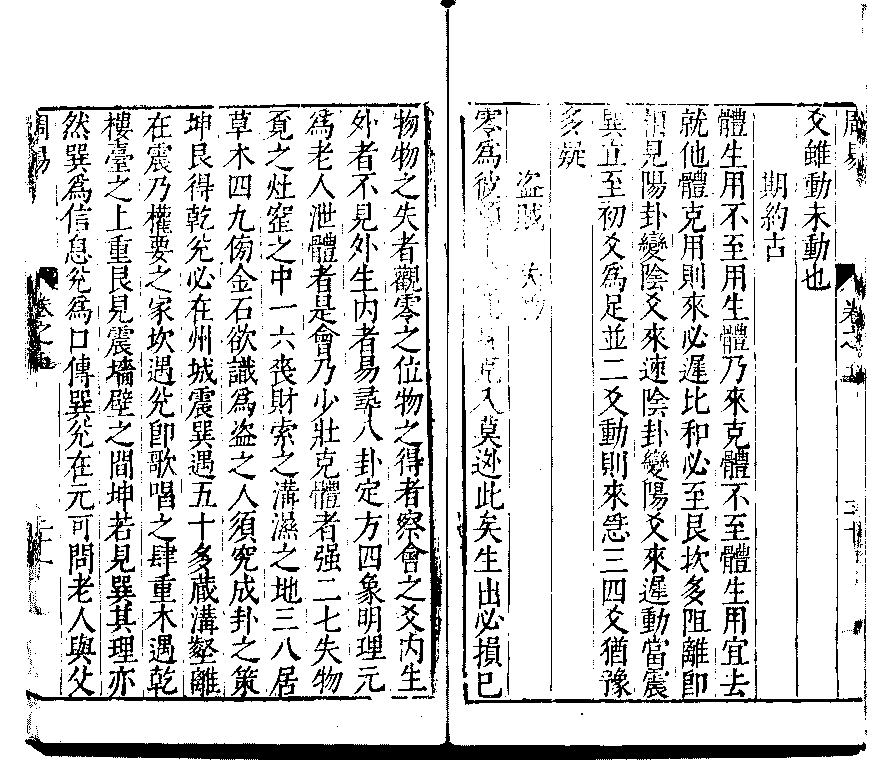 周易　卷之　三十
爻雖動未動也
期約占
體生用不至用生體乃來克體不至體生用宜去
就他體克用則來必遲比和必至艮坎多阻離即
見陽卦變陰爻來速陰卦變陽爻來遲動當震
巽直至初爻爲足並二爻動則來急三四爻猶豫
多疑
盜賊　失物
零爲彼克入莫逃此矣生出必損已
物物之失者觀零之位物之得者察會之爻內生
外者不見外生內者易尋八卦定方四象明理元
爲老人泄體者是會乃少壯克體者强二七失物
覓之灶窰之中一六喪財索之溝濕之地三八居
草木四九傍金石欲識爲盗之人須究成卦之策
坤艮得乾兌必在州城震巽遇五十多藏溝壑離
在震乃權要之家坎遇兌即歌唱之肆重木遇乾
樓臺之上重艮見震墻壁之間坤若見巽其理亦
然巽爲信息兌爲口傳巽兌在元可問老人與父
周易　卷之